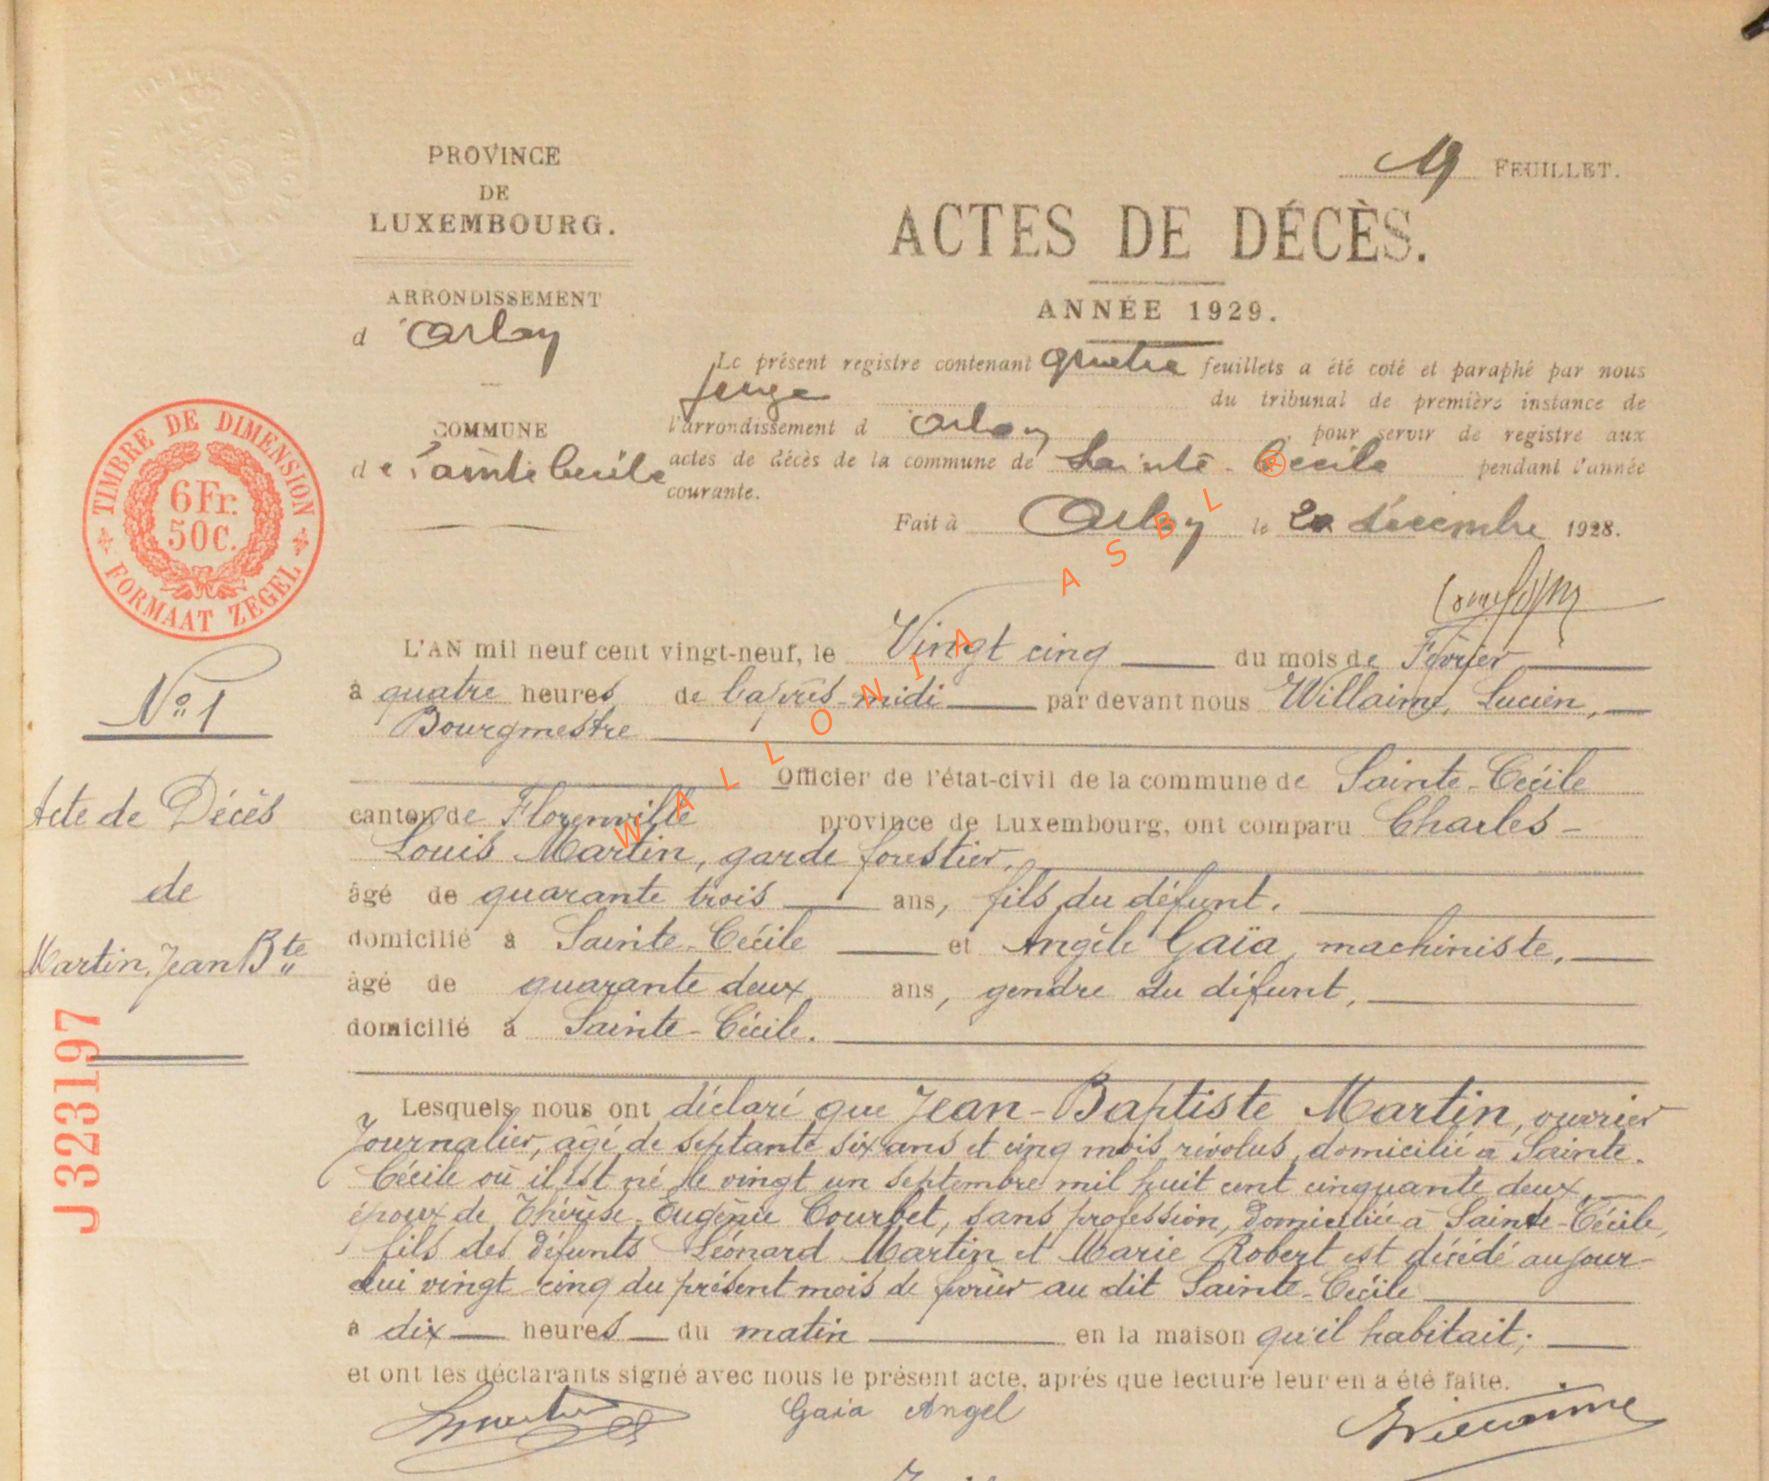 PROVINCE
DE
LUXEMBOURG.
ARRONDISSEMENT
d'Arlon
COMMUNE
de Sainte Cécile
FEUILLET.
ACTES DE DÉCÈS.
ANNÉE 1929.
Le présent registre contenant quatre feuillets a été coté et paraphé par nous
Juge du tribunal de première instance de
l'arrondissement d'Arlon pour servir de registre aux
actes de décès de la commune de Sainte-Cécile pendant l'année
courante.
Fait à Arlon le 20 décembre 1928.
TIMBRE DE DIMENSION
6Fr.
50c.
FORMAAT ZEGEL
No 1
Acte de Décès
de
Martin, Jean Bte
J 323197
L'AN mil neuf cent vingt-neuf, le Vingt cinq du mois de Février
à quatre heures de l'après-midi par devant nous Willaime, Lucien,
Bourgmestre
Officier de l'état-civil de la commune de Sainte-Cécile
canton de Florenville province de Luxembourg, ont comparu Charles-
Louis Martin, garde forestier,
âgé de quarante trois ans, fils du défunt,
domicilié à Sainte-Cécile et Angèle Gaïa, machiniste,
âgé de quarante deux ans, gendre du défunt,
domicilié à Sainte-Cécile.
Lesquels nous ont déclaré que Jean-Baptiste Martin, ouvrier
Journalier, âgé de septante six ans et cinq mois révolus, domicilié à Sainte-
Cécile où il est né le vingt un septembre mil huit cent cinquante deux,
époux de Thérèse-Eugénie Courbet, sans profession, domiciliée à Sainte-Cécile,
fils des défunts Léonard Martin et Marie Robert est décédé aujour-
dui vingt cinq du présent mois de février au dit Sainte-Cécile
à dix heures du matin en la maison qu'il habitait;
et ont les déclarants signé avec nous le présent acte, après que lecture leur en a été faite.
Gaia Angel
WALLONIA ASBL ®